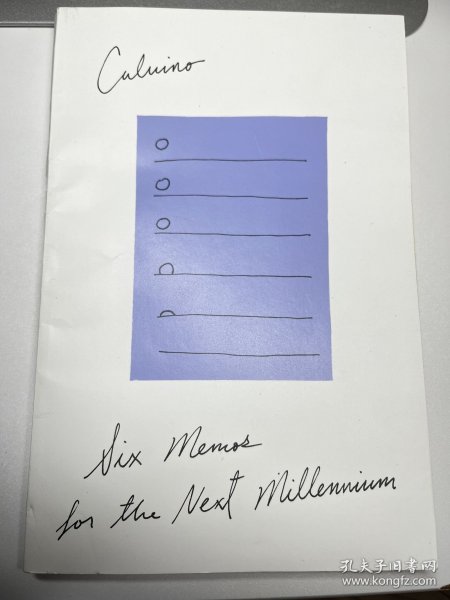 Calvino
Six Memos
for the Next Millennium
孔夫子旧书网
www.kongfz.com